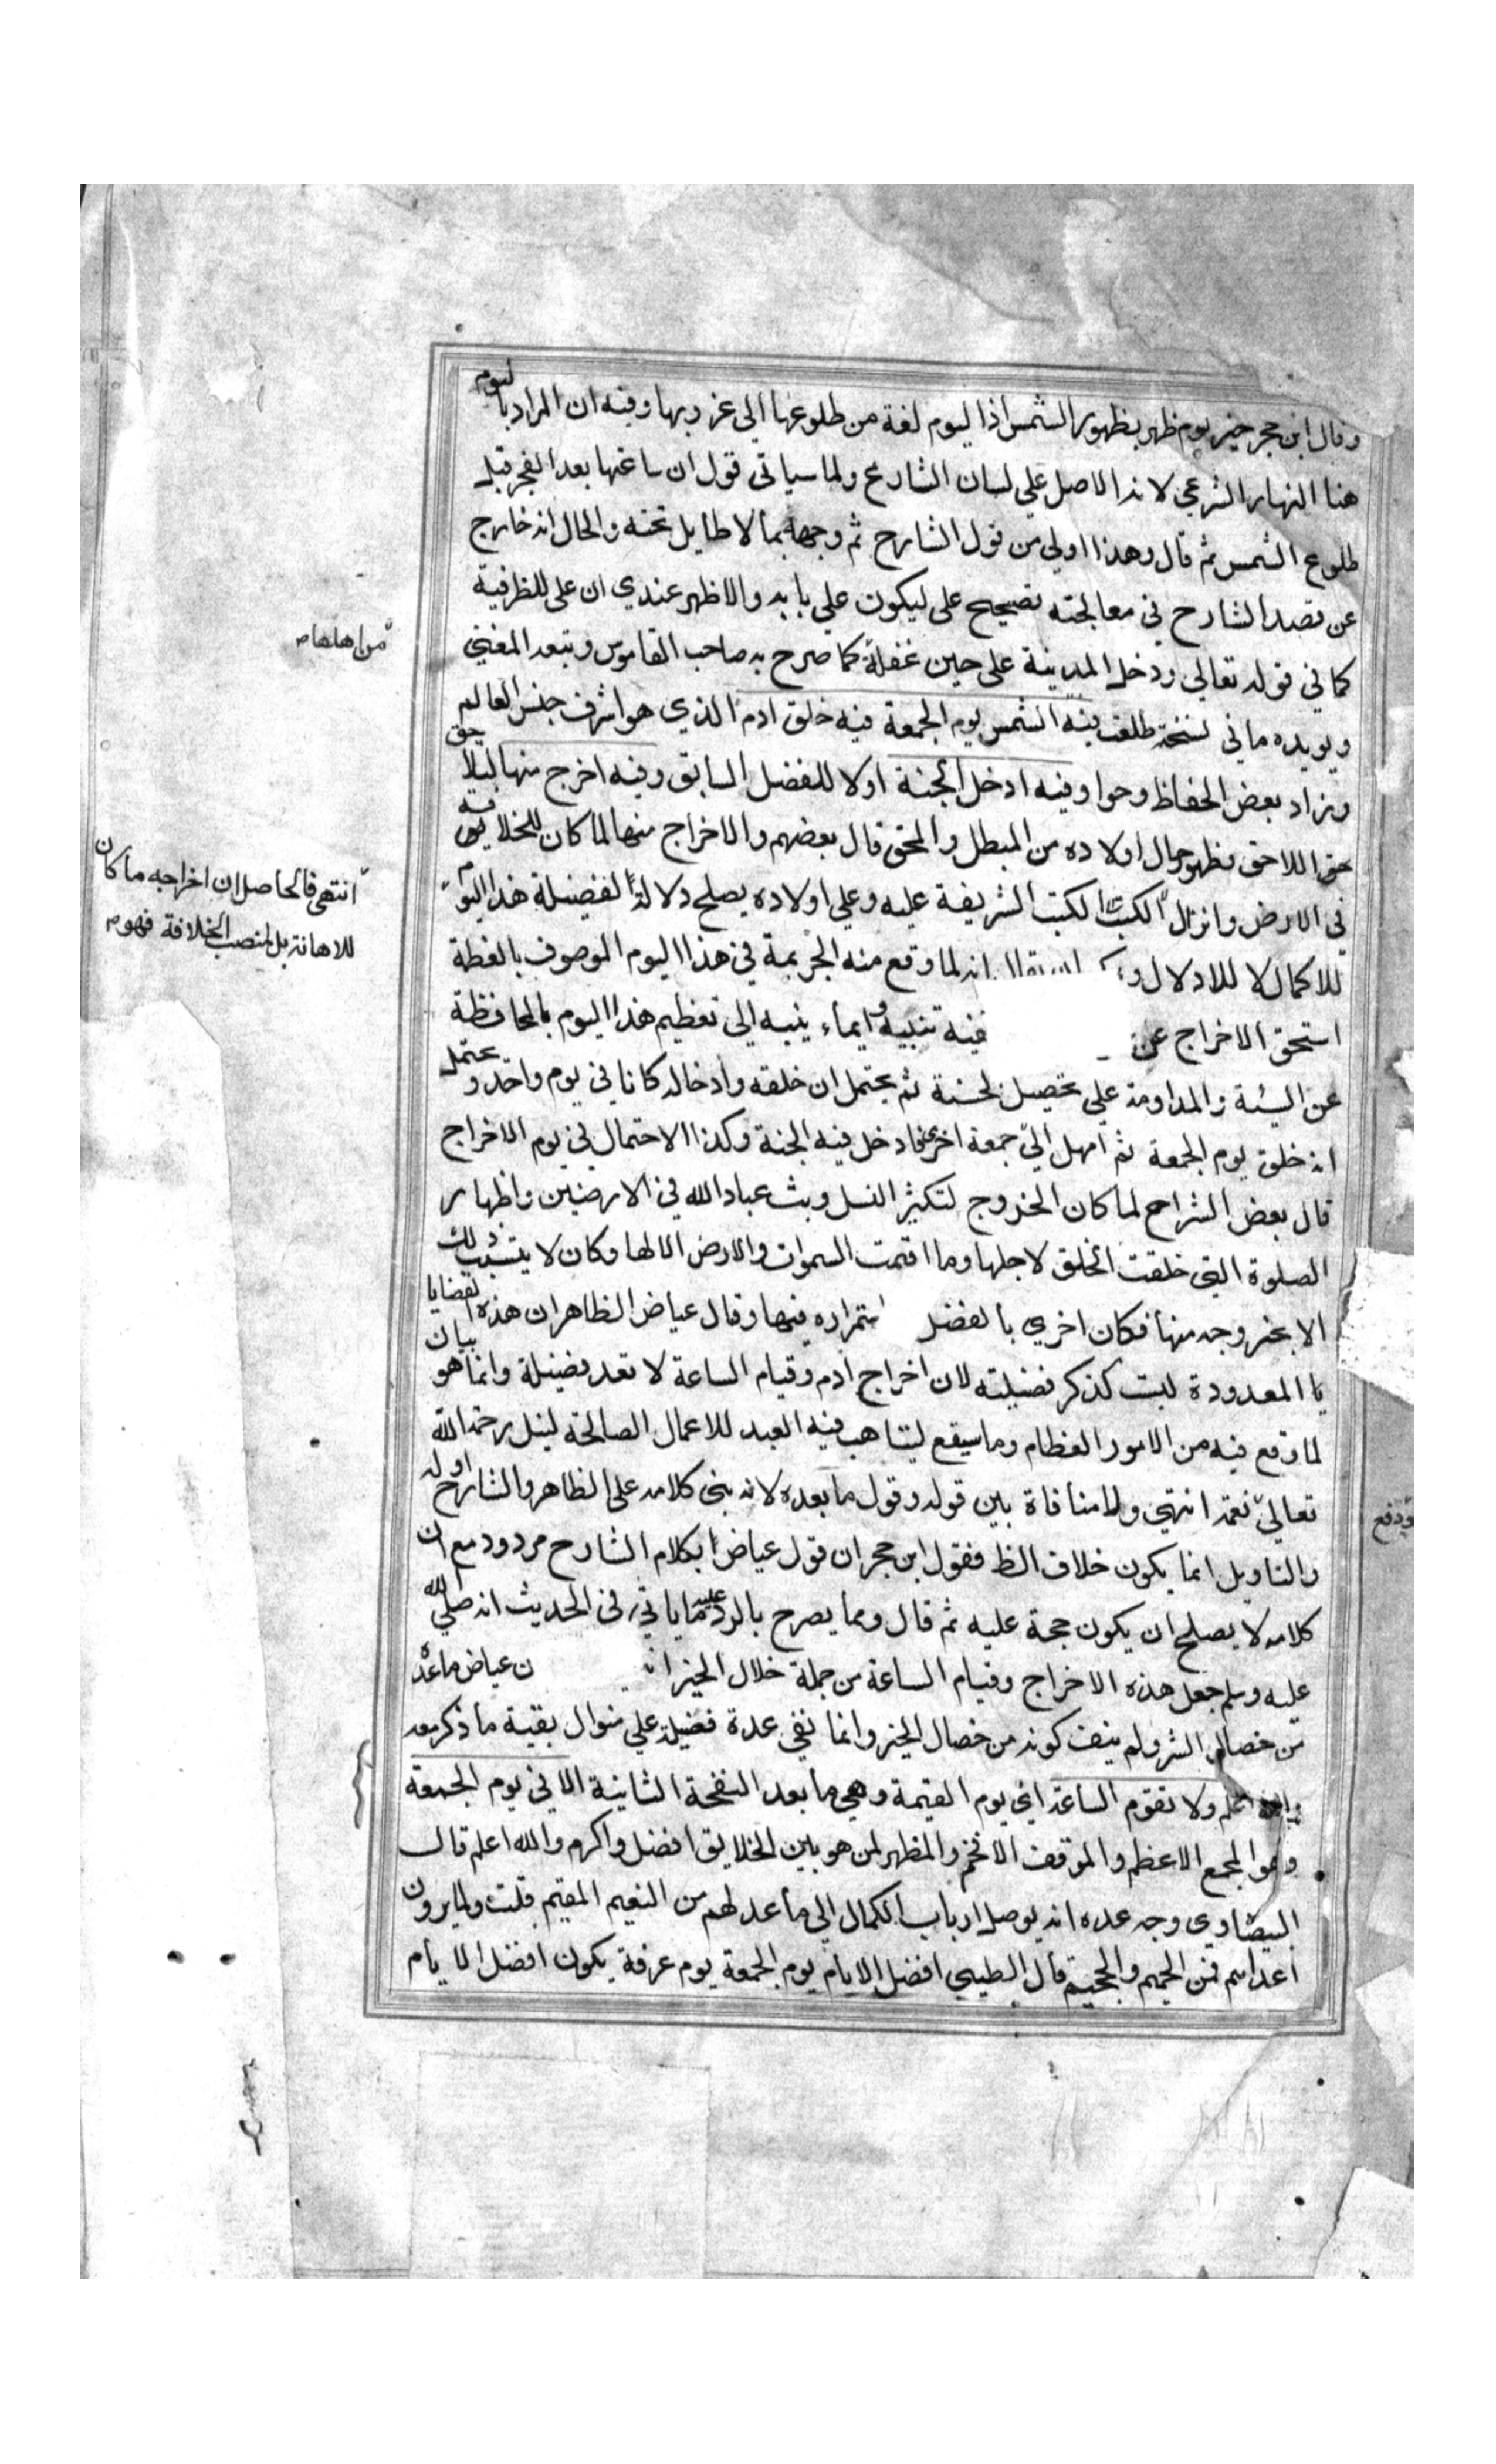 وقال ابن حجر خير يوم ظهر بظهور الشمس اذ اليوم لغة من طلوعها الى غروبها وفيه ان المراد باليوم
هنا النهار الشرعي لانه الاصل علي لسان الشارع ولما سياتى قول ان ساعتها بعد الفجر قبل
طلوع الشمس ثم قال وهذا اولى من قول الشارح ثم وجهه بما لا طايل تحته والحال انه خارج
عن قصد الشارح في معالجته تصحيح على ليكون علي بابه والاظهر عندي ان على للظرفية
كما في قوله تعالي ودخل المدينة على حين غفلة كما صرح به صاحب القاموس وتبعه المغني
من اهلها
ويويده ما في نسخة طلعت فيه الشمس يوم الجمعة فيه خلق ادم الذي هو اشرف جنس العالم
وزاد بعض الحفاظ وحوا وفيه ادخل الجنة اولا للفضل السابق وفيه اخرج منها ليلا
حق اللاحق وظهور حال اولاده من المبطل والمحق قال بعضهم والاخراج منها لما كان للخلافة
انتهى فالحاصل ان اخراجه ما كان
للاهانة بل لمنصب الخلافة فهو
في الارض وانزال الكتب الشريفة عليه وعلي اولاده يصلح دلالة لفضيلة هذا اليوم
للاكمال لا للاذلال انه لما وقع منه الجريمة في هذا اليوم الموصوف بالعظمة
استحق الاخراج عن فيه تنبيه وايماء ينبيه الي تعظيم هذا اليوم بالمحافظة
عن السيئة والمداومة علي تحصيل لحسنة ثم يحتمل ان خلقه وادخاله كانا في يوم واحد ويحتمل
انه خلق يوم الجمعة ثم امهل الي جمعة اخرى فادخل فيه الجنة وكذا الاحتمال في يوم الاخراج
قال بعض الشراح لما كان الخروج لتكثير النسل وبث عباد الله في الارضين واظهار
الصلوة التي خلقت الخلق لاجلها وما اقمت السموات والارض الا لها وكان لا يتسبب ذلك
الا بخروجه منها فكان احري بالفضل استمراره فيها وقال عياض الظاهر ان هذه القضايا
يا المعدودة ليست كذكر فضيلته لان اخراج ادم وقيام الساعة لا تعد فضيلة وانما هو بيان
لما وقع فيه من الامور العظام وما سيقع ليتاهب فيه العبد للاعمال الصالحة لنيل رحمة الله
تعالي نقمه انتهي ولا منافاة بين قوله وقول ما بعده لانه بنى كلامه على الظاهر والشارح اوله
ودفع
والتاويل انما يكون خلاف الظ فقول ابن حجر ان قول عياض بكلام الشارح مردود مع ان
كلامه لا يصلح ان يكون حجة عليه ثم قال ومما يصرح بالرد عليه ما ياتي في الحديث انه صلي الله
عليه وسلم جعل هذه الاخراج وقيام الساعة من جملة خلال الخير ن عياض ما عده
من خصال الشر ولم ينف كونه من خصال الخير وانما نفي عدة فضيلة علي منوال بقية ما ذكر معه
والله اعلم ولا تقوم الساعة اي يوم القيمة وهي ما بعد النفخة الثانية الا في يوم الجمعة
وهو المجمع الاعظم والموقف الافخم والمظهر لمن هو بين الخلايق افضل واكرم والله اعلم قال
البيضاوي وجه عده انه يوصل ارباب الكمال الي ما عد لهم من النعيم المقيم قلت ولما يرون
اعدائهم في الحميم والجحيم قال الطيبي افضل الايام يوم الجمعة يوم عرفة يكون افضل الايام